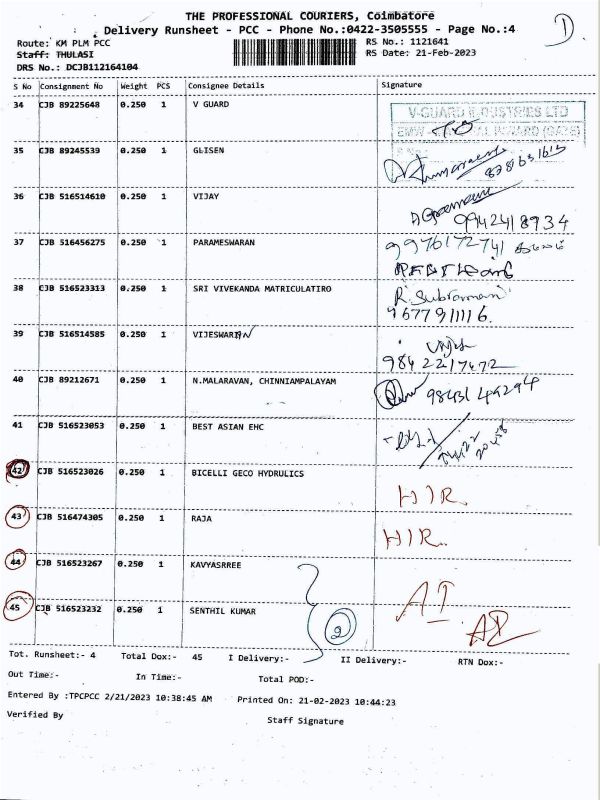 THE PROFESSIONAL COURIERS, Coimbatore
Delivery Runsheet - PCC - Phone No.:0422-3505555 - Page No.:4
1
Route: KM PLM PCC
RS No.: 1121641
Staff: THULASI
RS Date: 21-Feb-2023
DRS No.: DCJB112164104
S No Consignment No Weight PCS Consignee Details Signature
34 CJB 89225648 0.250 1 V GUARD
V-GUARD INDUSTRIES LTD
35 CJB 89245539 0.250 1 GLISEN
36 CJB 516514610 0.250 1 VIJAY
9942418934
37 CJB 516456275 0.250 1 PARAMESWARAN 9976172741
38 CJB 516523313 0.250 1 SRI VIVEKANDA MATRICULATIRO R. Subramani
9677911116.
39 CJB 516514585 0.250 1 VIJESWARAN
9842217472
40 CJB 89212671 0.250 1 N.MALARAVAN, CHINNIAMPALAYAM 9843149294
41 CJB 516523053 0.250 1 BEST ASIAN EHC
42 CJB 516523026 0.250 1 BICELLI GECO HYDRULICS HIR
43 CJB 516474305 0.250 1 RAJA HIR
44 CJB 516523267 0.250 1 KAVYASRREE
45 CJB 516523232 0.250 1 SENTHIL KUMAR 2
Tot. Runsheet:- 4 Total Dox:- 45 I Delivery:- II Delivery:- RTN Dox:-
Out Time:- In Time:- Total POD:-
Entered By :TPCPCC 2/21/2023 10:38:45 AM Printed On: 21-02-2023 10:44:23
Verified By Staff Signature